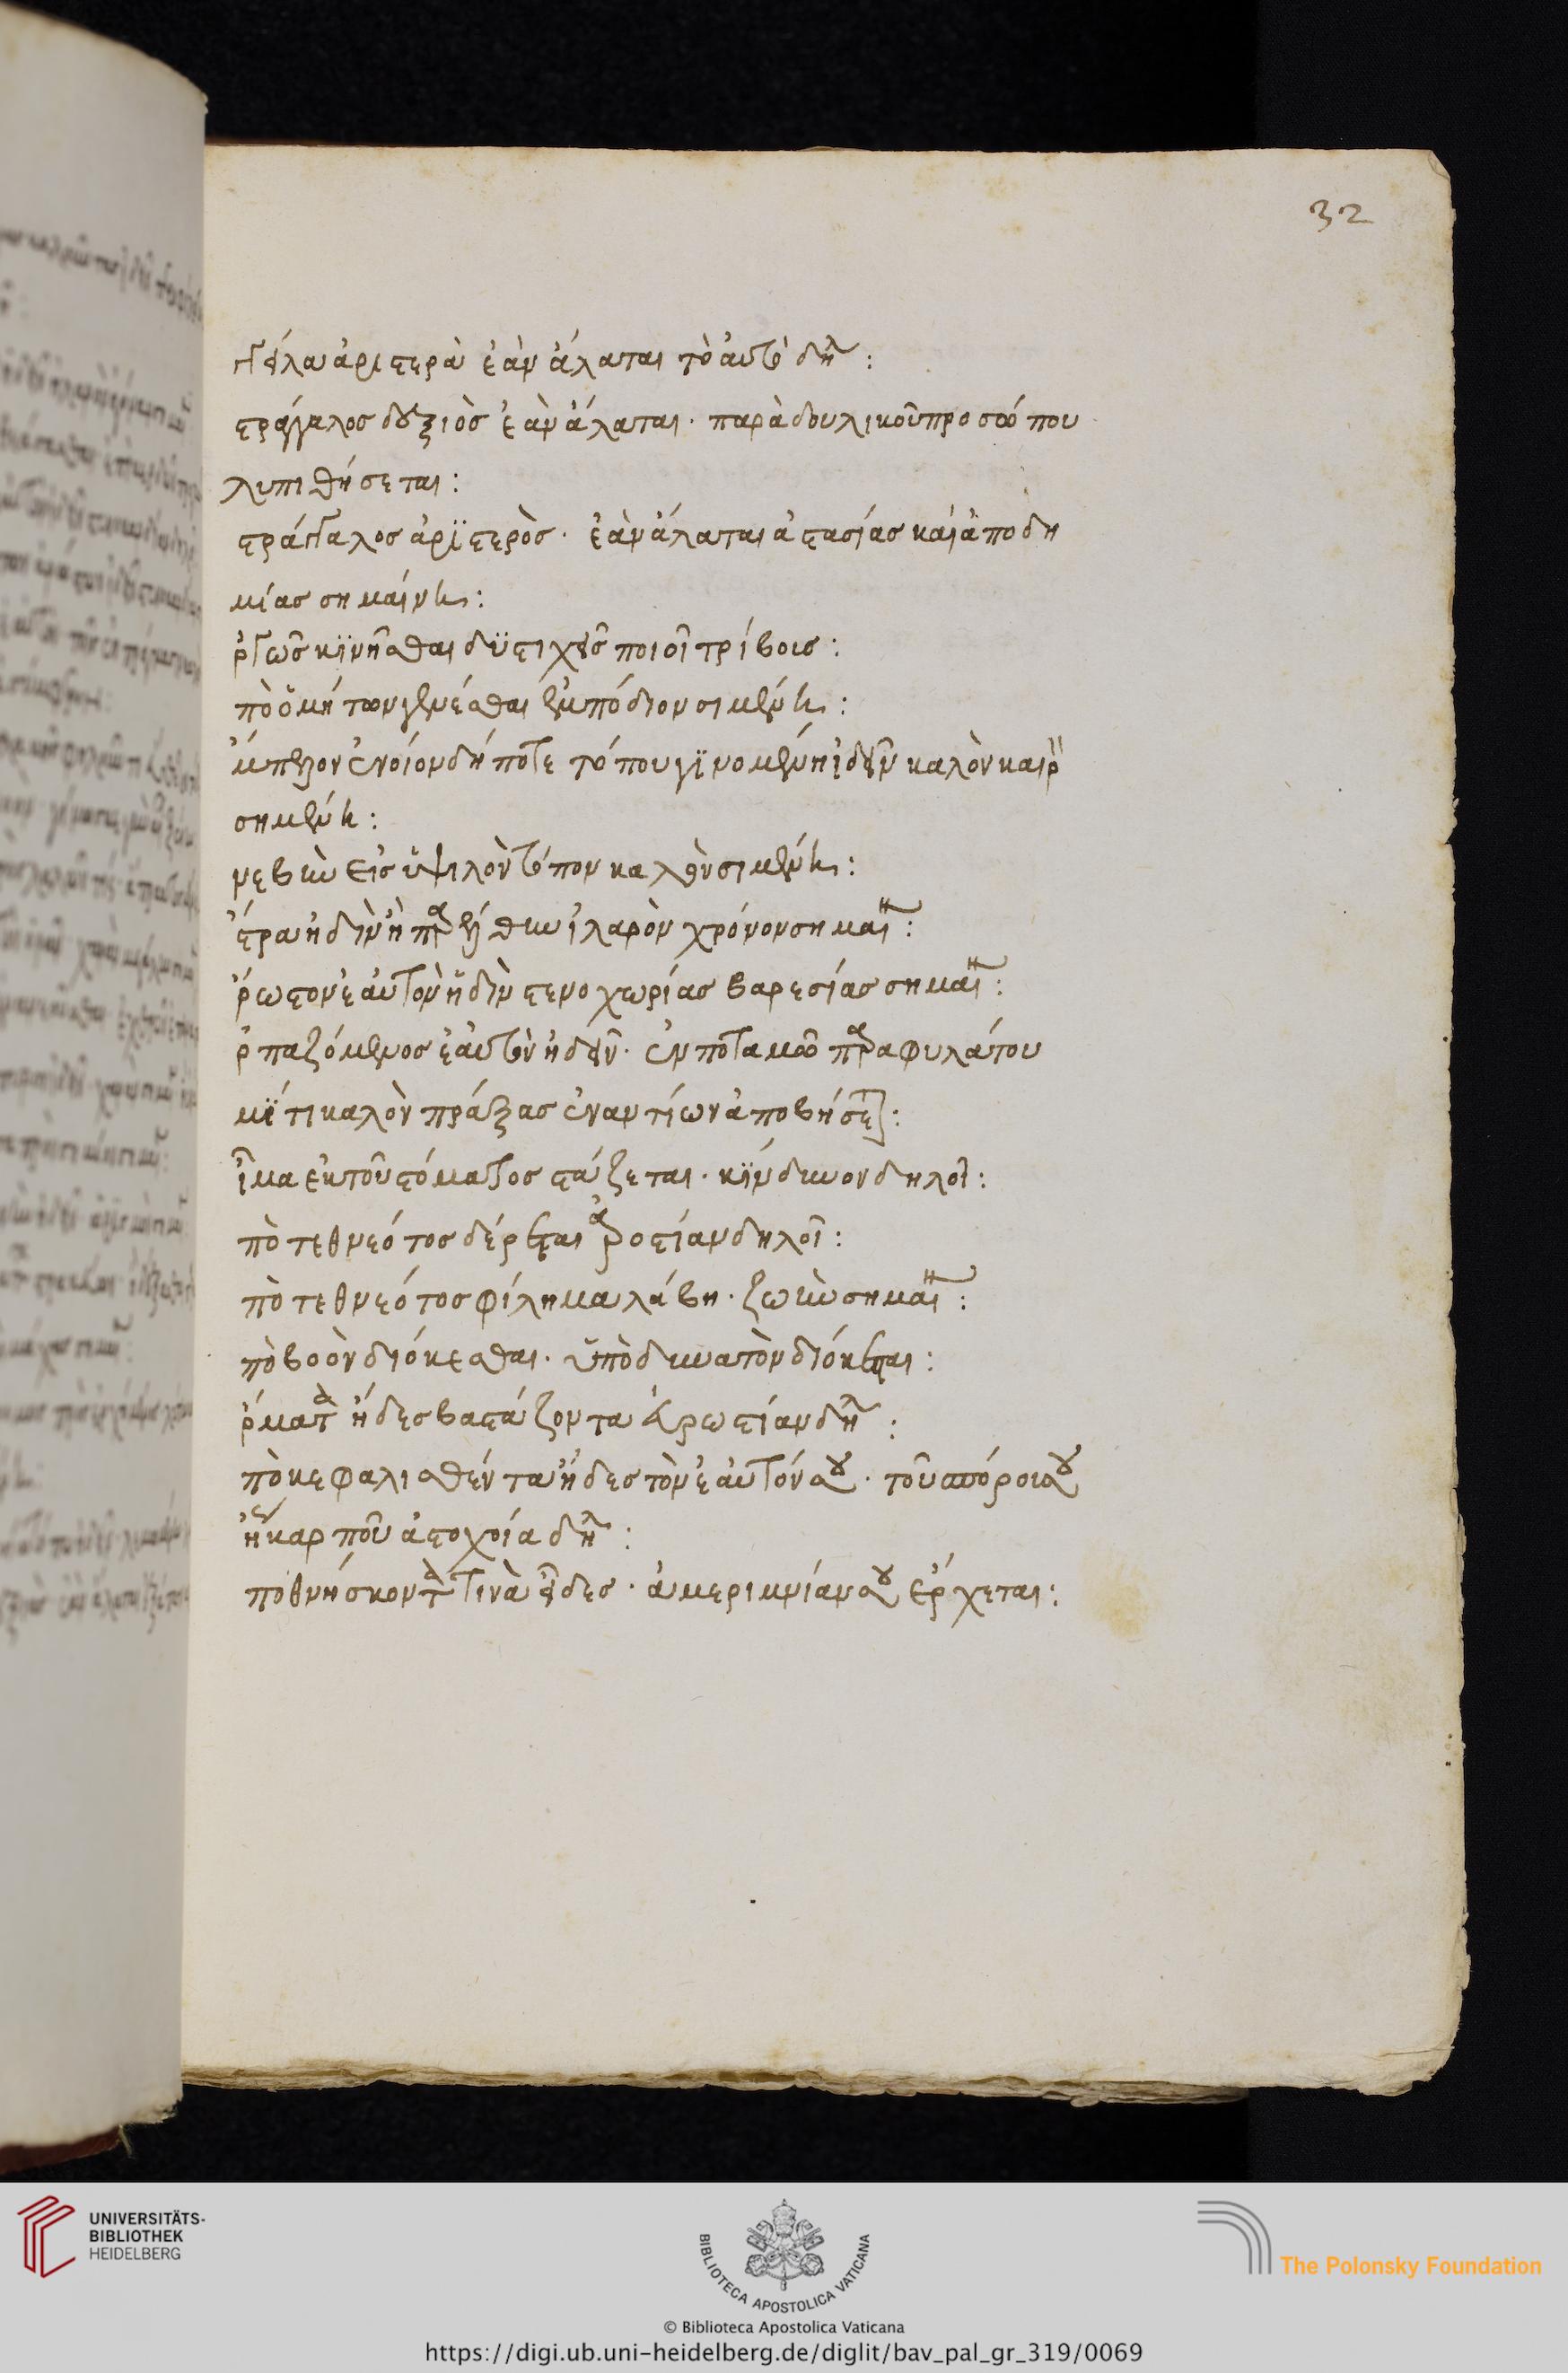 32
γγέλα ἀριστερὰ ἐὰν ἅλαται τὸ αὐτὸ δηλ :
στράγγαλος δεξιὸς ἐὰν ἅλαται · παρὰ δουλικοῦ προσώπου
λυπιθήσεται :
στράγγαλος ἀρϊστερὸς · ἐὰν ἅλαται ἀστασίας καὶ ἀποδη
μίας σημαίνει :
κϊνῆσθαι δϋστιχεῖς ποιοῖ τρίβοις :
γενέσθαι ἐμπόδιον σιμένει :
μπελον ἐν οἵον δήποτε τόπου γϊνομένη ἰδεῖν καλὸν καιρ
σημένει :
νεβὴν εἰς ὑψιλὸν τόπον καλὸν σιμένει :
ἱλαρὸν χρόνον σημαί :
ρωστον ἑαυτὸν ἤδιν στενοχωρίας βαρεσίας σημαί :
ρπαζόμενος ἑαυτὸν ἠδεῖν · ἐν ποταμῶ παραφυλάτου
μΐ τι καλὸν πράξας ἐναντίων ἀποβήσεται :
ἷμα ἐκ τοῦ στόματος στάζεται · κΐνδινον δηλοῖ :
πὸ τεθνεότος δέρεται ἀροστίαν δηλοῖ :
πὸ τεθνεότος φίλημα λάβη · ζωὴν σημαί :
πὸ βοὸν διόκεσθαι · ὑπὸ δινατὸν διόκεται :
ρματα ἤδες βαστάζοντα ἀρωστίαν δηλ :
πὸ κεφαλισθέντα ἤδες τὸν ἑαυτόν σου · τοῦ σπόροισου
ἢ καρποῦ ἀστοχοία δηλ :
ποθνήσκοντα τινὰ εἶδες · ἀμεριμνίαν σου ἔρχεται :
UNIVERSITÄTS-
BIBLIOTHEK
HEIDELBERG
BIBLIOTECA APOSTOLICA VATICANA
The Polonsky Foundation
© Biblioteca Apostolica Vaticana
https://digi.ub.uni-heidelberg.de/diglit/bav_pal_gr_319/0069